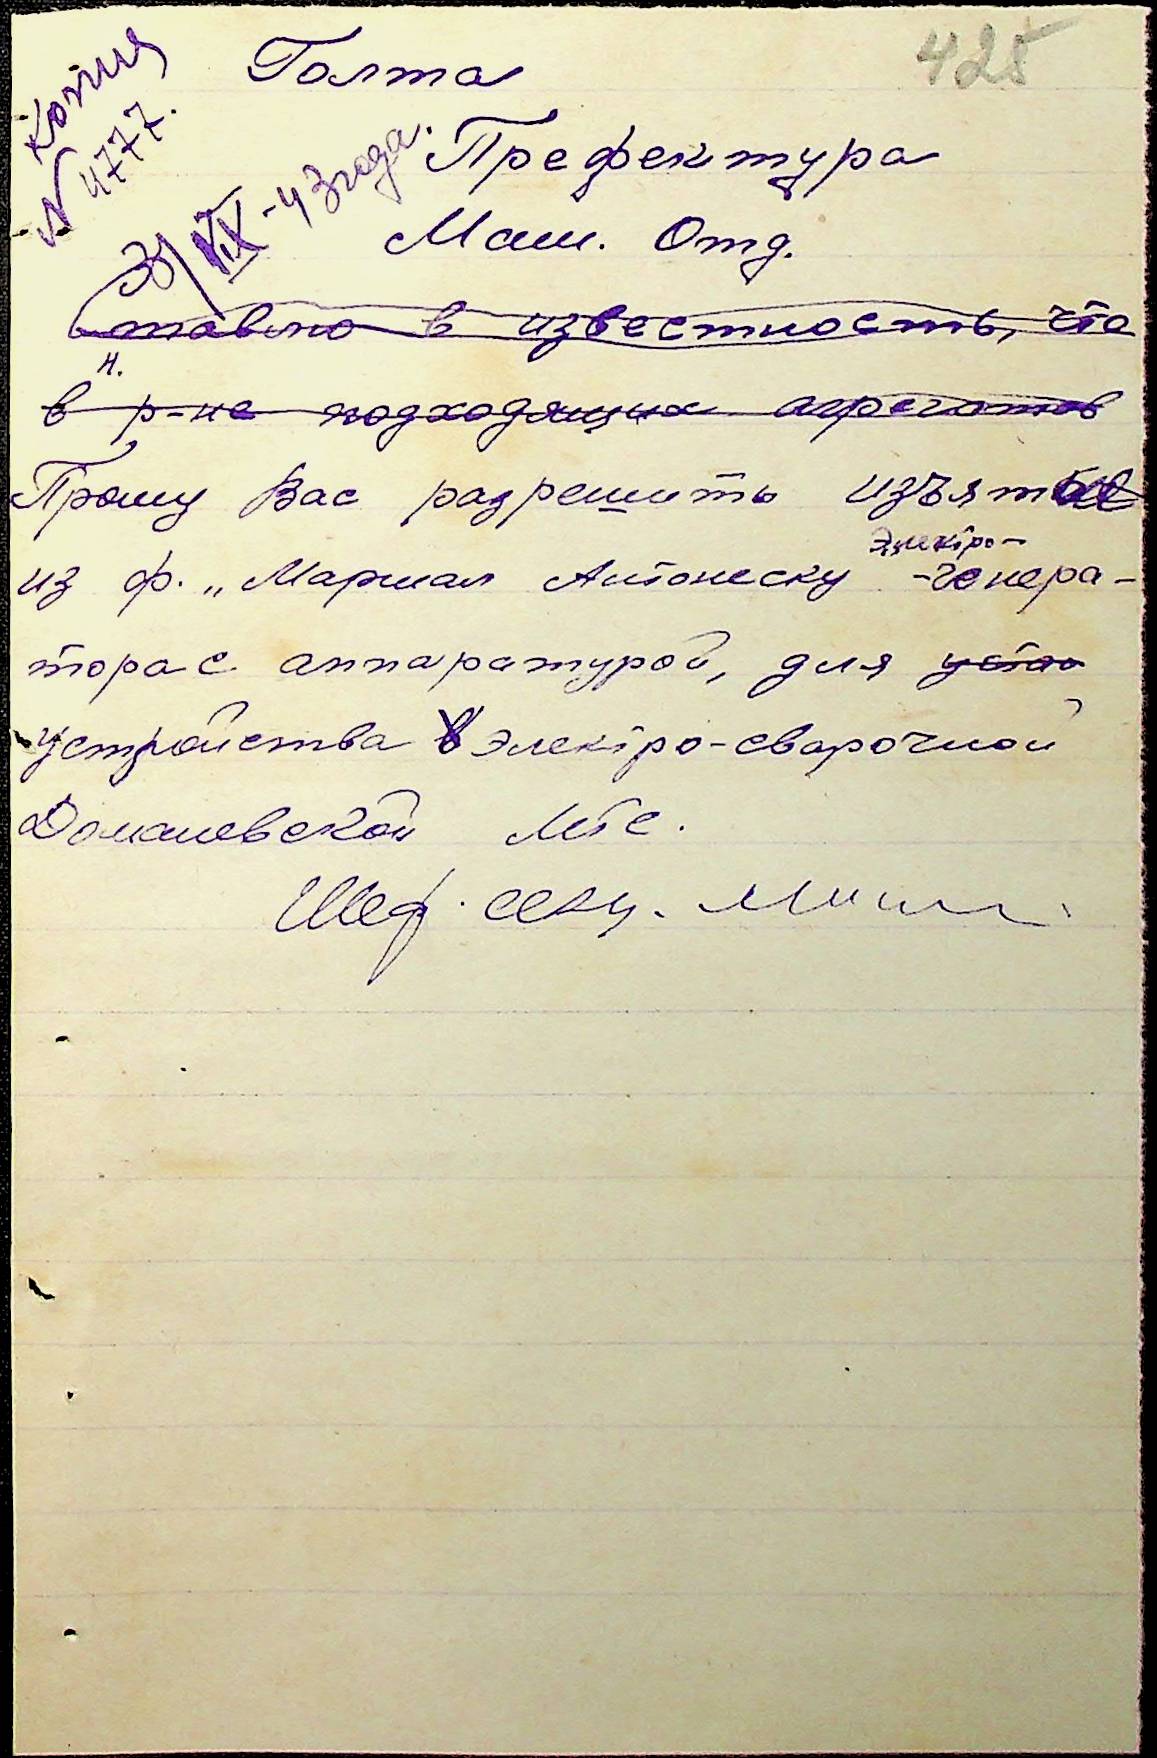 425
Копия
N 4777.
-43 года.
Голта
Префектура
Маш. Отд.
Ставлю в известность, что
н.
в р-не подходящих агрегатов
Прошу Вас разрешить изъятие
Электро-
из ф. „Маршал Антонеску -генера-
тора с аппаратурой, для устан
устройства электро-сварочной
Доманевской МТС.
Шеф. секц.